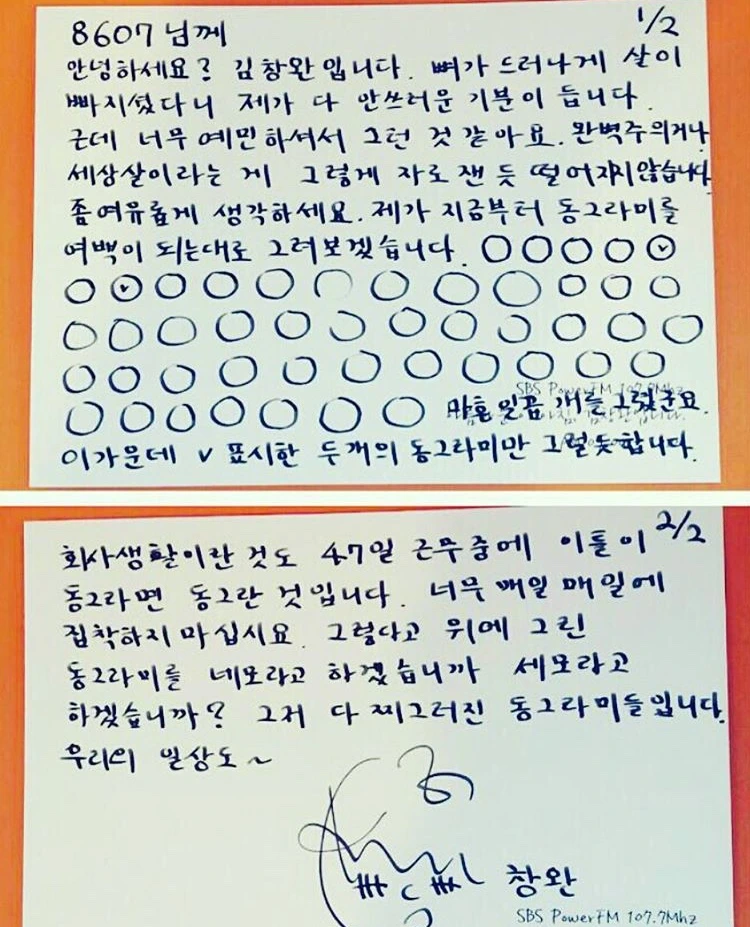 8607님께
1/2
안녕하세요? 김창완입니다. 뼈가 드러나게 살이
빠지셨다니 제가 다 안쓰러운 기분이 듭니다.
근데 너무 예민하셔서 그런 것 같아요. 완벽주의거나
세상살이라는 게 그렇게 자로 잰 듯 떨어지지 않습니다.
좀 여유롭게 생각하세요. 제가 지금부터 동그라미를
여백이 되는대로 그려보겠습니다.
마흔 일곱 개를 그렸군요.
이가운데 v 표시한 두개의 동그라미만 그럴듯합니다.
SBS PowerFM 107.7Mhz
2/2
회사생활이란 것도 47일 근무중에 이틀이
동그라면 동그란 것입니다. 너무 매일 매일에
집착하지 마십시요. 그렇다고 위에 그린
동그라미를 네모라고 하겠습니까 세모라고
하겠습니까? 그저 다 찌그러진 동그라미들입니다.
우리의 일상도~
창완
SBS PowerFM 107.7Mhz